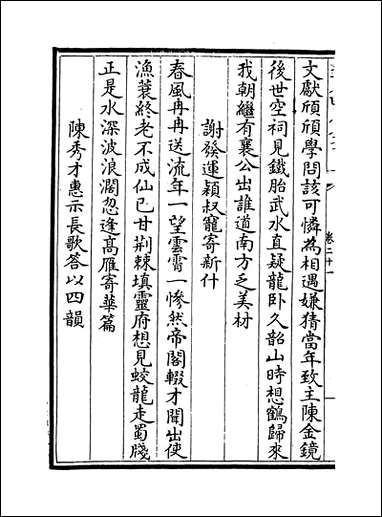 文獻頎頎學問該可憐為相遇嫌猜當年致主陳金鏡
後世空祠見鐵胎武水直疑龍卧久韶山時想鶴歸來
我朝繼有襄公出誰道南方乏美材
謝發運穎叔寵寄新什
春風冉冉送流年一望雲霄一慘然帝閣輟才聞出使
漁蓑終老不成仙已甘荆棘填靈府想見蛟龍走蜀牋
正是水深波浪濶忽逢髙雁寄華篇
陳秀才惠示長歌答以四韻
卷二十一